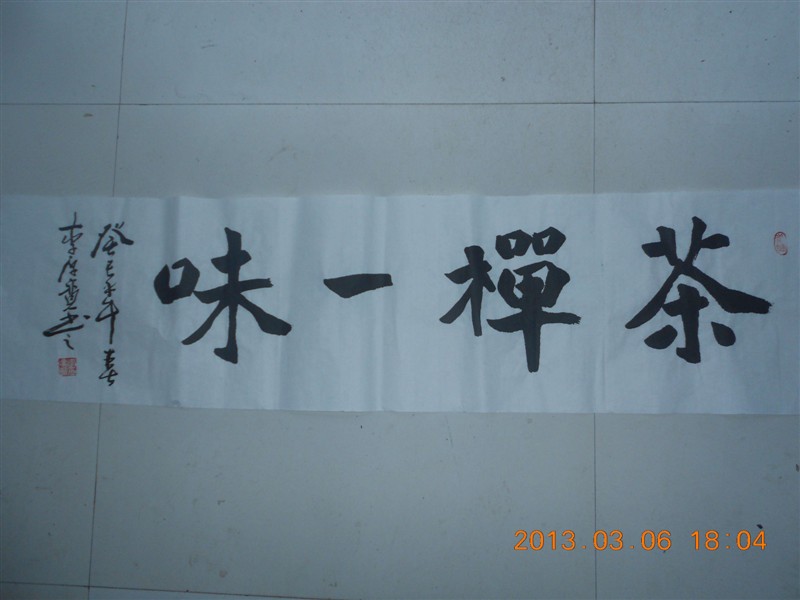 茶禪一味
癸巳年春
2013.03.06 18:04